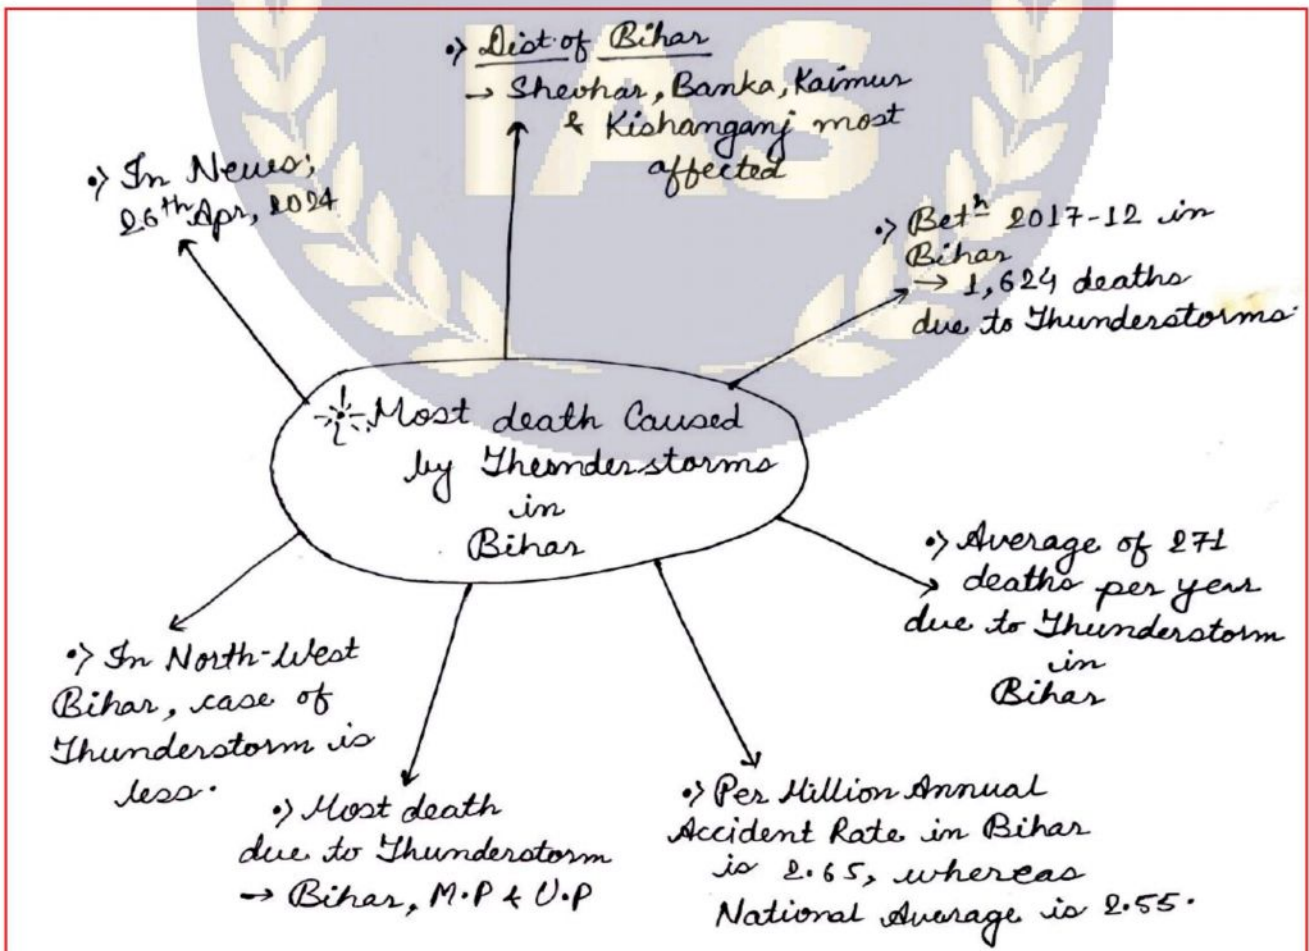 IAS
•> Dist. of Bihar
→ Sheohar, Banka, Kaimur
& Kishanganj most
affected
•> In News;
26th Apr, 2024
•> Betn 2017-12 in
Bihar
→ 1,624 deaths
due to Thunderstorms.
Most death Caused
by Thunderstorms
in
Bihar
•> Average of 271
deaths per year
due to Thunderstorm
in
Bihar
•> In North-West
Bihar, case of
Thunderstorm is
less.
•> Most death
due to Thunderstorm
→ Bihar, M.P & U.P
•> Per Million Annual
Accident Rate in Bihar
is 2.65, whereas
National Average is 2.55.